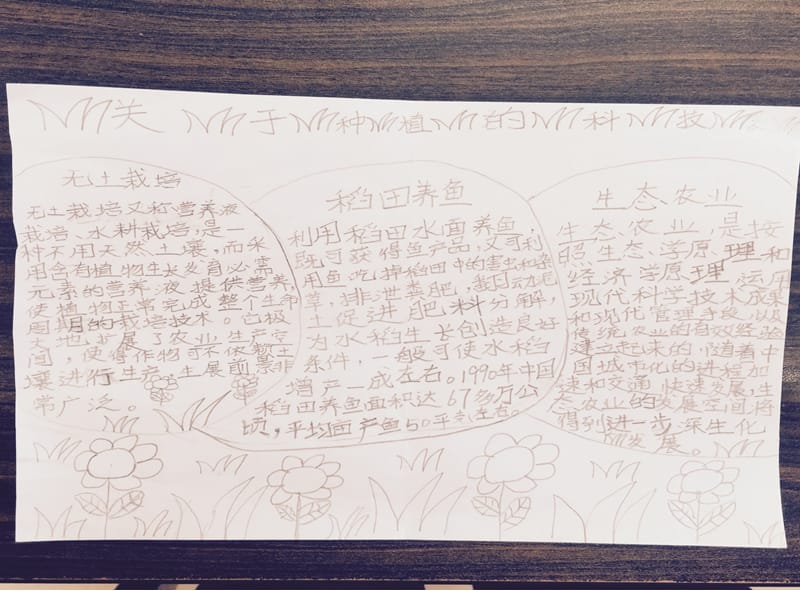 关于种植的科技
无土栽培
无土栽培又称营养液
栽培、水耕栽培,是一
种不用天然土壤,而采
用含有植物生长发育必需
元素的营养液提供营养,
使植物正常完成整个生命
周期的栽培技术。它极
大地扩展了农业生产空
间,使得作物可不依赖土
壤进行生产,生展前景非
常广泛。
稻田养鱼
利用稻田水面养鱼,
既可获得鱼产品,又可利
用鱼吃掉稻田中的害虫和杂
草,排泄粪肥,翻动泥
土促进肥料分解,
为水稻生长创造良好
条件,一般可使水稻
增产一成左右。1990年中国
稻田养鱼面积达67多万公
顷,平均亩产鱼50千克左右。
生态农业
生态农业,是按
照生态学原理和
经济学原理,运用
现代科学技术成果
和现代管理手段,以及
传统农业的有效经验
建立起来的,随着中
国城市化的进程加
速和交通快速发展,生
态农业的发展空间将
得到进一步深生化
发展。